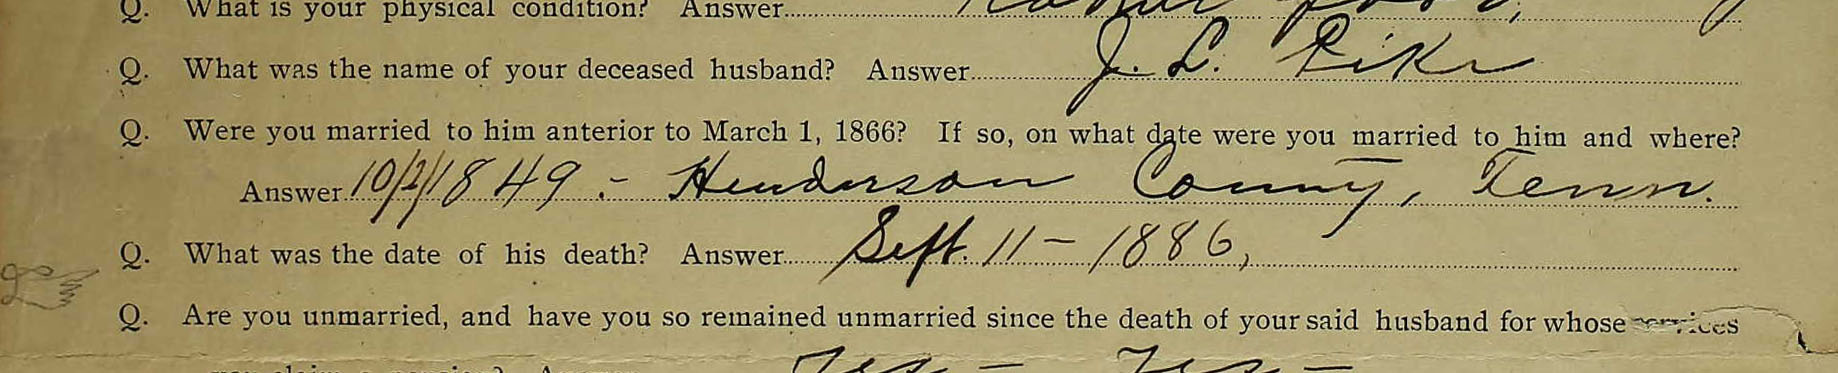 Q. What is your physical condition? Answer
Q. What was the name of your deceased husband? Answer J. L. Pike
Q. Were you married to him anterior to March 1, 1866? If so, on what date were you married to him and where?
Answer 10/2/1849 :- Henderson County, Tenn.
Q. What was the date of his death? Answer Sept. 11 - 1886,
Q. Are you unmarried, and have you so remained unmarried since the death of your said husband for whose services